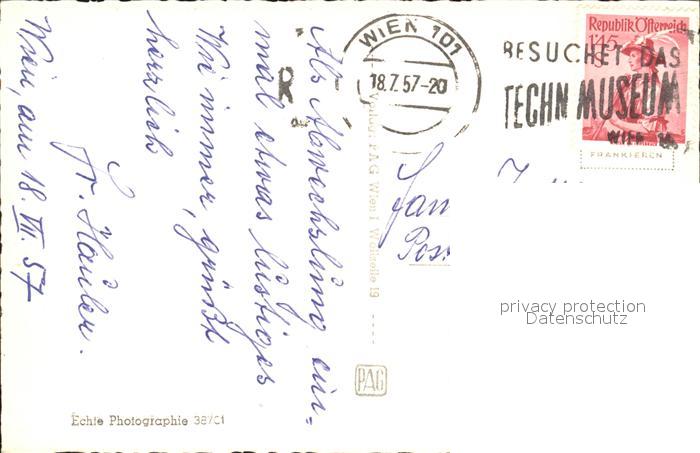 Als Abwechslung ein-
mal etwas lustiges.
Wie immer, grüßt
herzlich
Fr. Häusler.
Wien, am 18. VII. 57
WIEN 101
18.7.57-20
BESUCHET DAS
TECHN MUSEUM
WIEN
Republik Österreich
1'45
FRANKIEREN
Fam
Pos
Verlag PAG Wien I Wollzeile 19
PAG
Echte Photographie 38701
privacy protection
Datenschutz